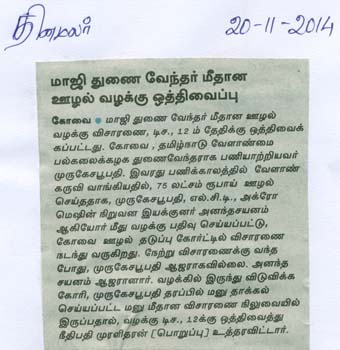 தினமலர்
20-11-2014
மாஜி துணை வேந்தர் மீதான
ஊழல் வழக்கு ஒத்திவைப்பு
கோவை ● மாஜி துணை வேந்தர் மீதான ஊழல்
வழக்கு விசாரணை, டிச., 12 ம் தேதிக்கு ஒத்திவைக்
கப்பட்டது. கோவை , தமிழ்நாடு வேளாண்மை
பல்கலைக்கழக துணைவேந்தராக பணியாற்றியவர்
முருகேசபூபதி. இவரது பணிக்காலத்தில் வேளாண்
கருவி வாங்கியதில், 75 லட்சம் ரூபாய் ஊழல்
செய்ததாக, முருகேசபூபதி, எல்.சி.டி., அக்ரோ
மெஷின் நிறுவன இயக்குனர் அனந்தசயனம்
ஆகியோர் மீது வழக்கு பதிவு செய்யப்பட்டு,
கோவை ஊழல் தடுப்பு கோர்ட்டில் விசாரணை
நடந்து வருகிறது. நேற்று விசாரணைக்கு வந்த
போது, முருகேசபூபதி ஆஜராகவில்லை. அனந்த
சயனம் ஆஜரானார். வழக்கில் இருந்து விடுவிக்க
கோரி, முருகேசபூபதி தரப்பில் மனு தாக்கல்
செய்யப்பட்ட மனு மீதான விசாரணை நிலுவையில்
இருப்பதால், வழக்கு டிச., 12க்கு ஒத்திவைத்து
நீதிபதி முரளிதரன் [பொறுப்பு] உத்தரவிட்டார்.